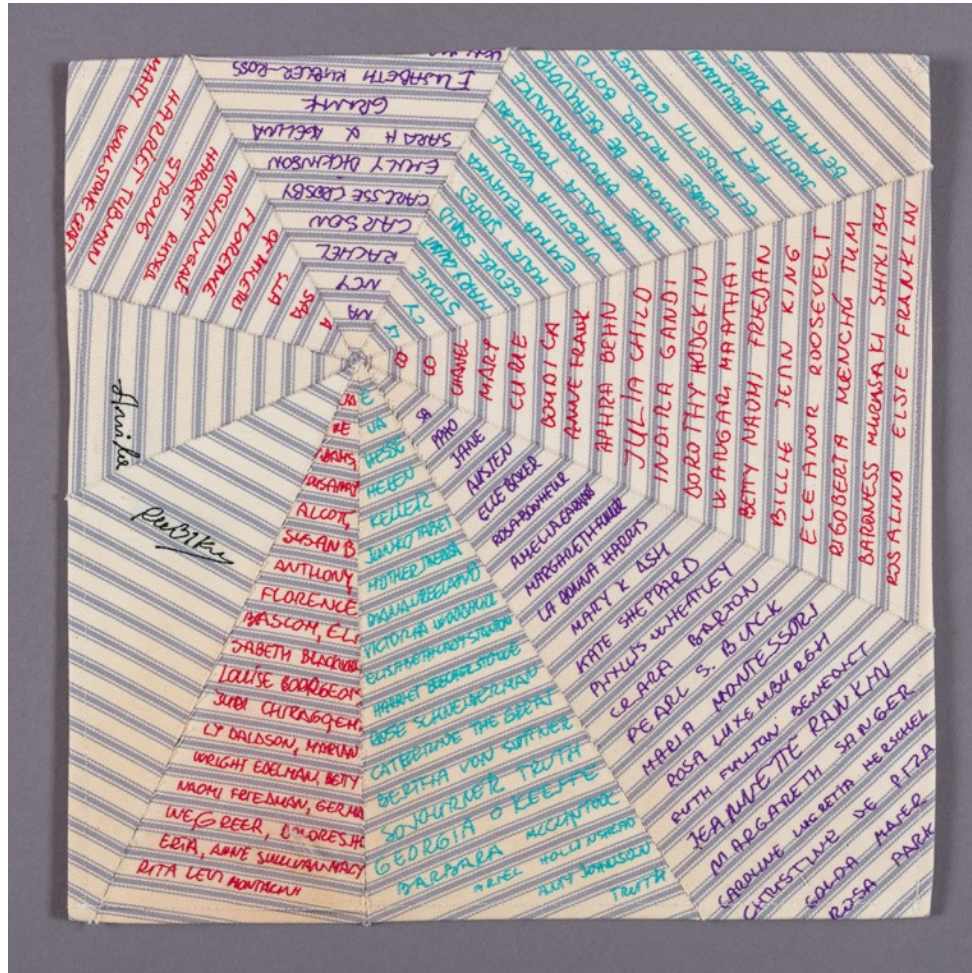 MARY WOLLSTONE CRAFT
HARRIET TUBMAN
STRONG
HARRYET RUSSEL
NIGHTINGALE
FLORENCE
OF
SLA
SAA
A
ELISABETH KUBLER-ROSS
GRIMKE
SARAH &
EMILY DICKINSON
CARESSE CROSBY
CARSON
RACHEL
NCY
NA
BEATRIX
JUDITH E NEUMANN
PAKY
ELIZABETH GURNEY
LOUISE ARNER BOYD
SIMONE DE BEAUVOIR
BANDARANAIKE
MALALA YOUSAFAI
VIRGINIA WOOLF
EMMA TENAYUCA
MARY STOPES
GEORGE SAND
MARY QUANT
STONE
CY
LU
CO
CO
CHANEL
MARY
CURIE
BOUDICA
ANNE FRANK
APHRA BEHN
JULIA CHILD
INDIRA GANDI
DOROTHY HODGKIN
WANGARI MAATHAI
BETTY NAOMI FRIEDAN
BILLIE JEAN KING
ELEANOR ROOSEVELT
RIGOBERTA MENCHÚ TUM
BARONESS MURASAKI SHIKIBU
ROSALIND ELSIE FRANKLIN
SA
PPHO
JANE
AUSTEN
ELLE BAKER
ROSA BONHEUR
AMELIA EARHART
MARGARETH FULLER
LA DONNA HARRIS
MARY K ASH
KATE SHEPPARD
PHYLLIS WHEATLEY
CLARA BARTON
PEARL S. BUCK
MARIA MONTESSORI
ROSA LUXEMBURGH
RUTH FULTON BENEDICT
JEANNETTE RANKIN
MARGARETH SANGER
CAROLINE LUCRETIA HERSCHEL
CHTRUSTINE DE PIZA
GOLDA MAIER
ROSA PARK
E
VA
HESSE
HELEN
KELLER
JUNKO TABEI
MOTHER TERESA
DIANA VREELAND
VICTORIA WOODHULL
ELISABETH CADY STANTON
HARRIET BEECHER STOWE
ROSE SCHNEIDERMAN
CATERTUNE THE GREAT
BERTHA VON SUTTNER
SOJOURNER TRUTH
GEORGIA O KEEFFE
BARBARA MCCLINTOCK
ARIEL HOLLINSHEAD
AMY JOHNSON
TRUTH
JA
NE
ADDAMS,
LOUSAMAY
ALCOTT,
SUSAN B
ANTHONY,
FLORENCE
BASCOM, ELI
SABETH BLACKWELL
LOUISE BOORGEOIS
JUDI CHIKAGO, EM,
LY DAIDSON, MARIAN
WRIGHT EDELMAN, BETTY
NAOMI FRIEDMAN, GERMA
WE, GREER, DOLORES, HU
ERTA, ANNE SULLIVAN MACY
RITA LEVI MONTALCINI